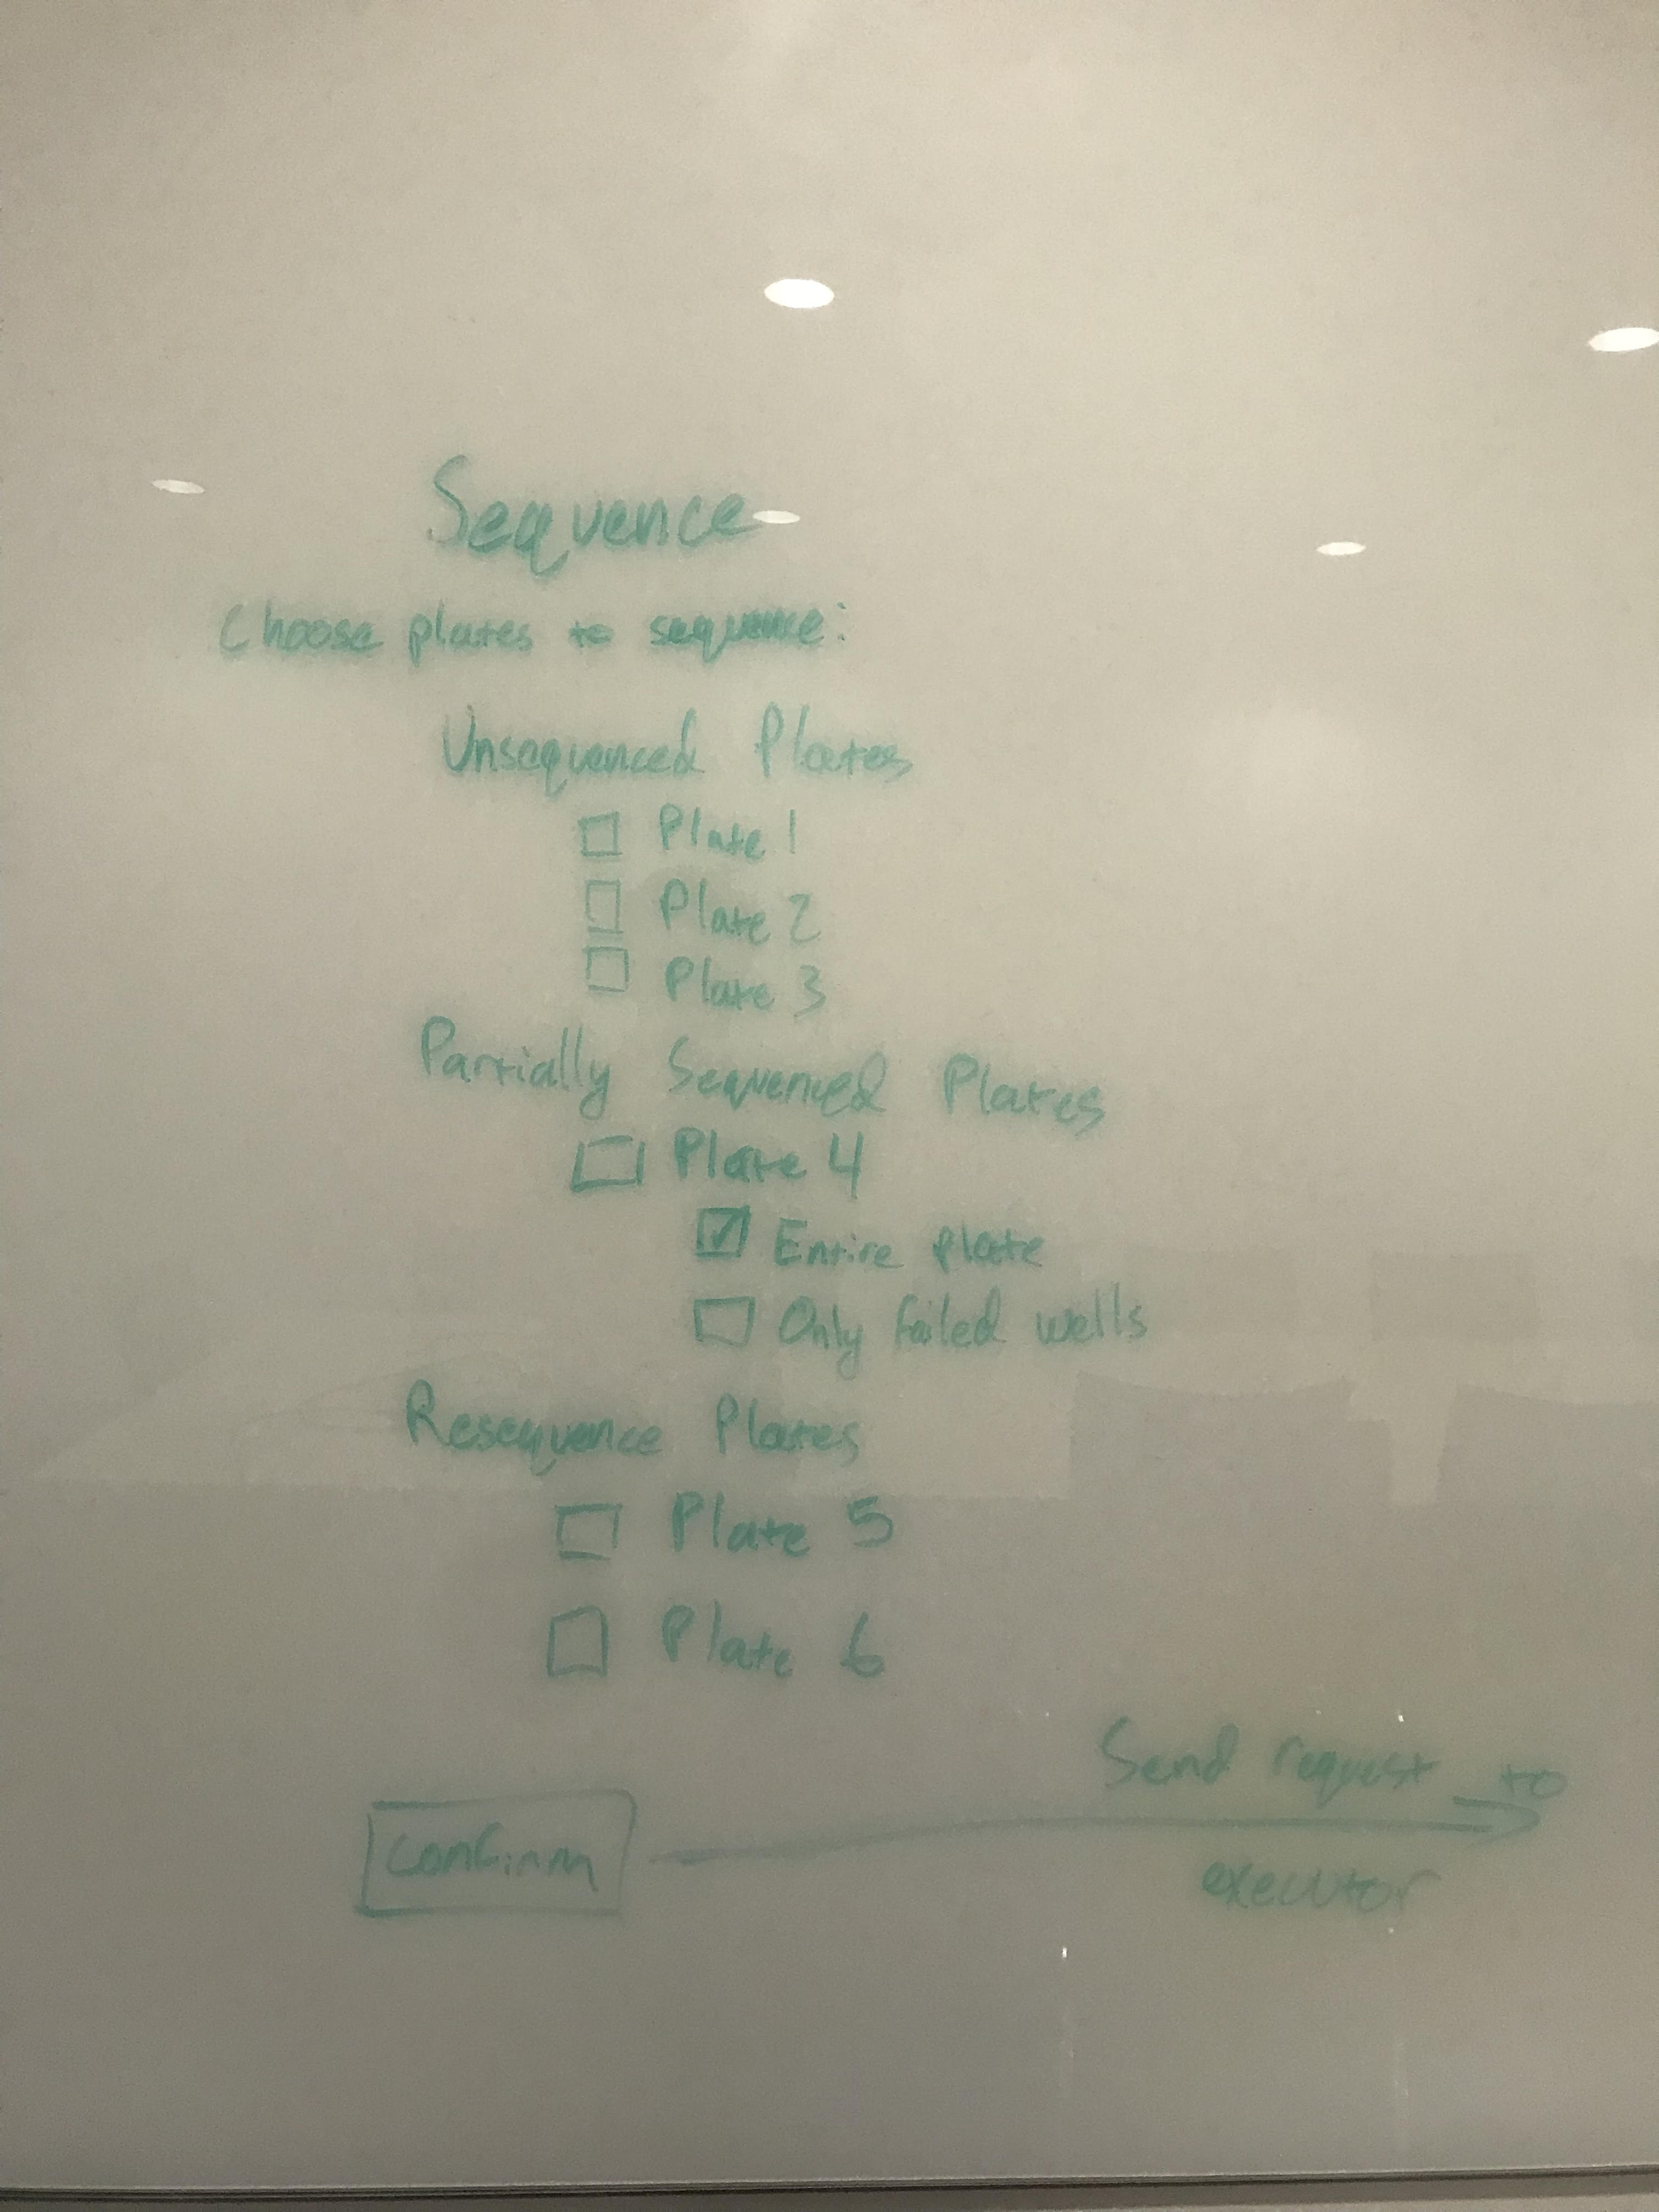 Sequence
Choose plates to sequence:
Unsequenced Plates
Plate 1
Plate 2
Plate 3
Partially Sequenced Plates
Plate 4
Entire plate
Only failed wells
Resequence Plates
Plate 5
Plate 6
Send request to
Confirm
executor